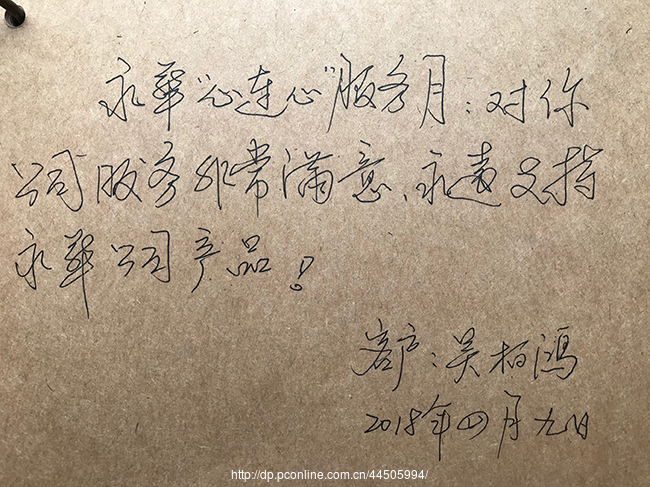 永华“心连心”服务月：对你
公司服务非常满意、永远支持
永华公司产品！
客户：吴柏鸿
2018年四月九日
http://dp.pconline.com.cn/44505994/